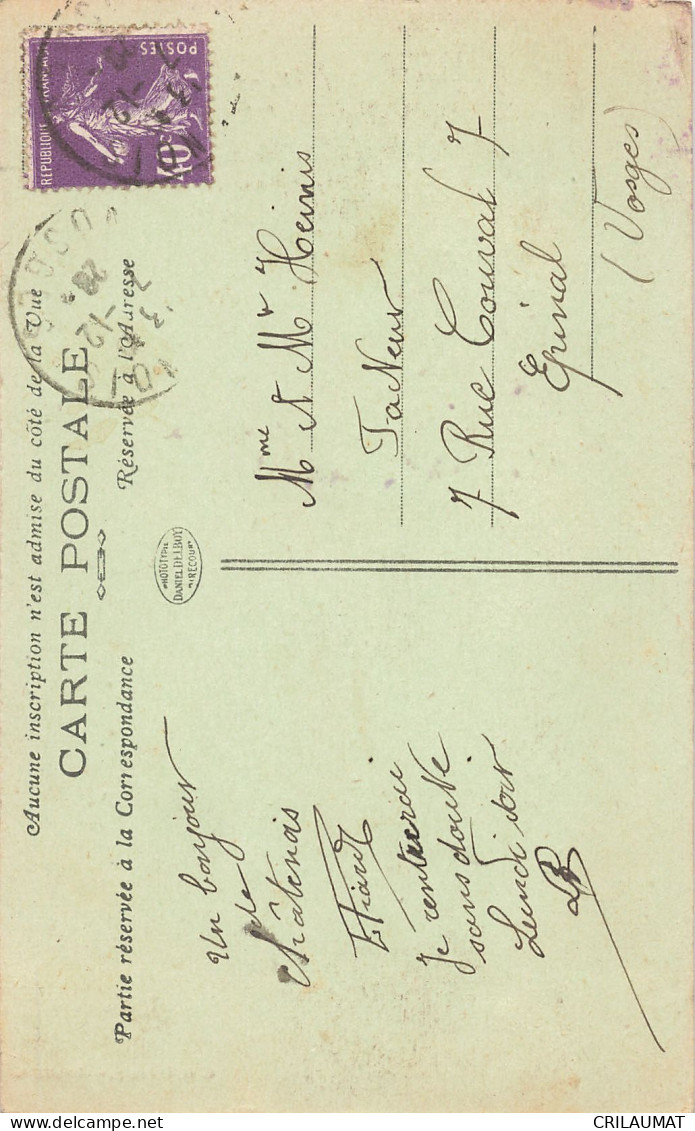 Aucune inscription n'est admise du côté de la Vue
CARTE POSTALE
Partie réservée à la Correspondance
Réservée à l'Adresse
PHOTOTYPIE
DANIEL DELBOY
MIRECOURT
Un bonjour
de
Châtenois
Je rentrerai
sans doute
Lundi soir
Mme et Mr Heinis
Taneur
7 Rue Couval 7
Epinal
(Vosges)
REPUBLIQUE FRANÇAISE
POSTES
40c
VOSGES
CRILAUMAT